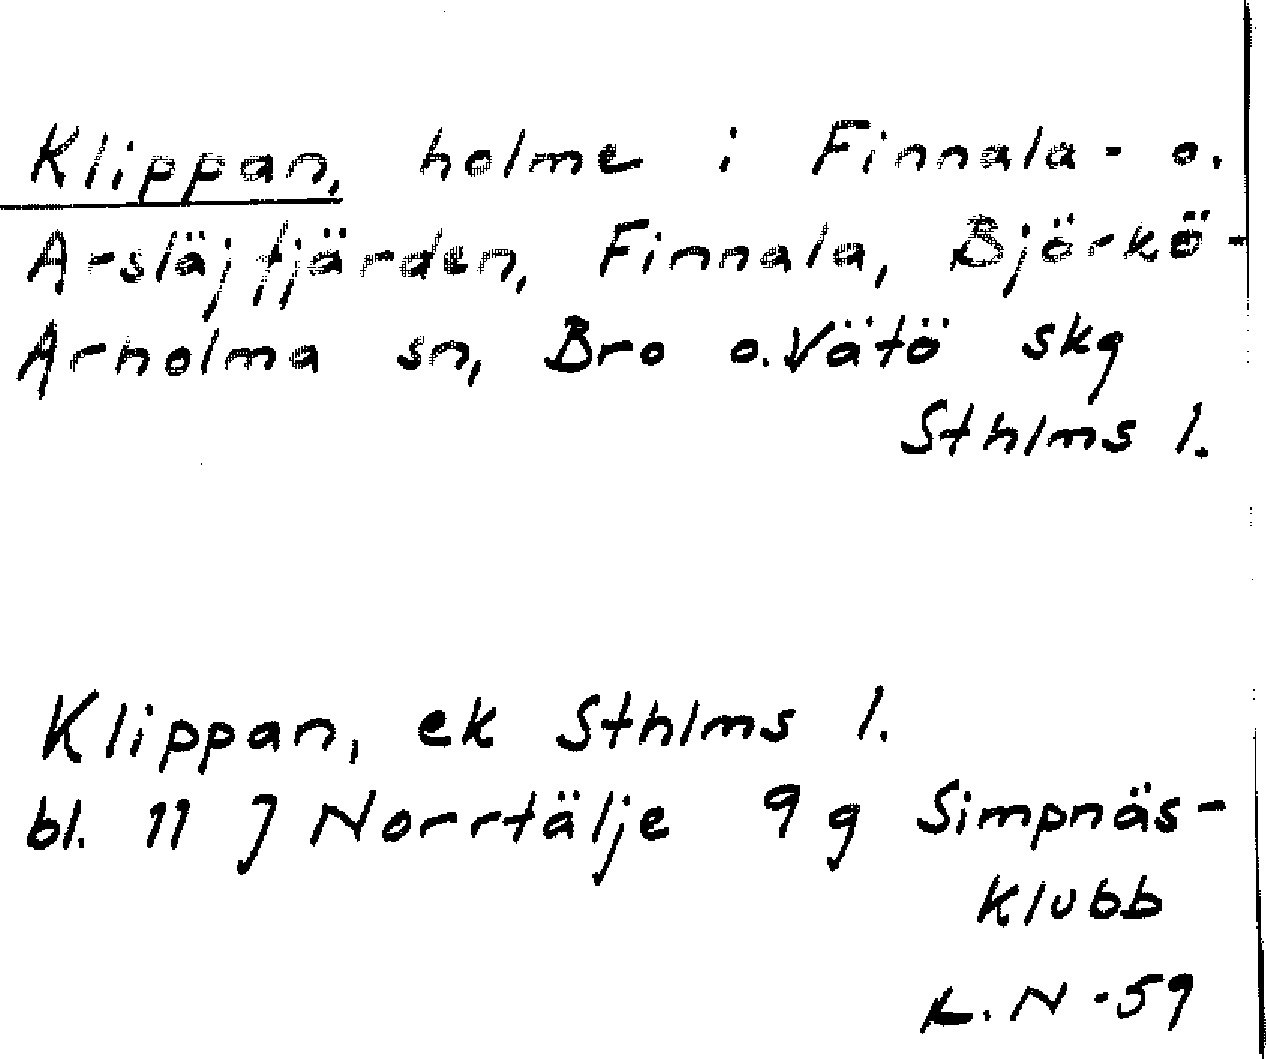 Klippan, holme i Finnala- o.
Arsläjfjärden, Finnala, Björkö-
Arholma sn, Bro o. Vätö skg
Sthlms l.
Klippan, ek Sthlms l.
bl. 11 J Norrtälje 9 g Simpnäs-
klubb
L. N -59